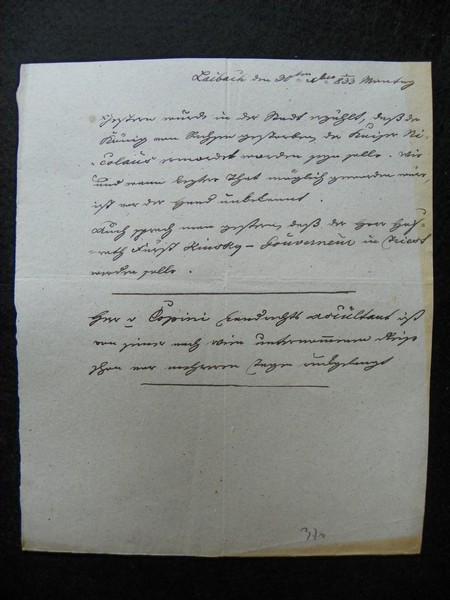 Laibach den 30ten xber 833 Montag
Gestern wurde in der Stadt erzählt, daß der
König von Sachsen gestorben, der Kaiser Ni-
colaus ermordet worden seyn solle. Wie
und wann letztere That möglich geworden wäre,
ist vor der Hand unbekannt.
Auch sprach man gestern, daß der Herr Hof-
rath Fürst Kinsky - Gouverneur in Triest
werden solle.
Herr v Copini Landrechts Auscultant ist
von seiner nach Wien unternommenen Reise
schon vor mehreren Tagen rückgelangt